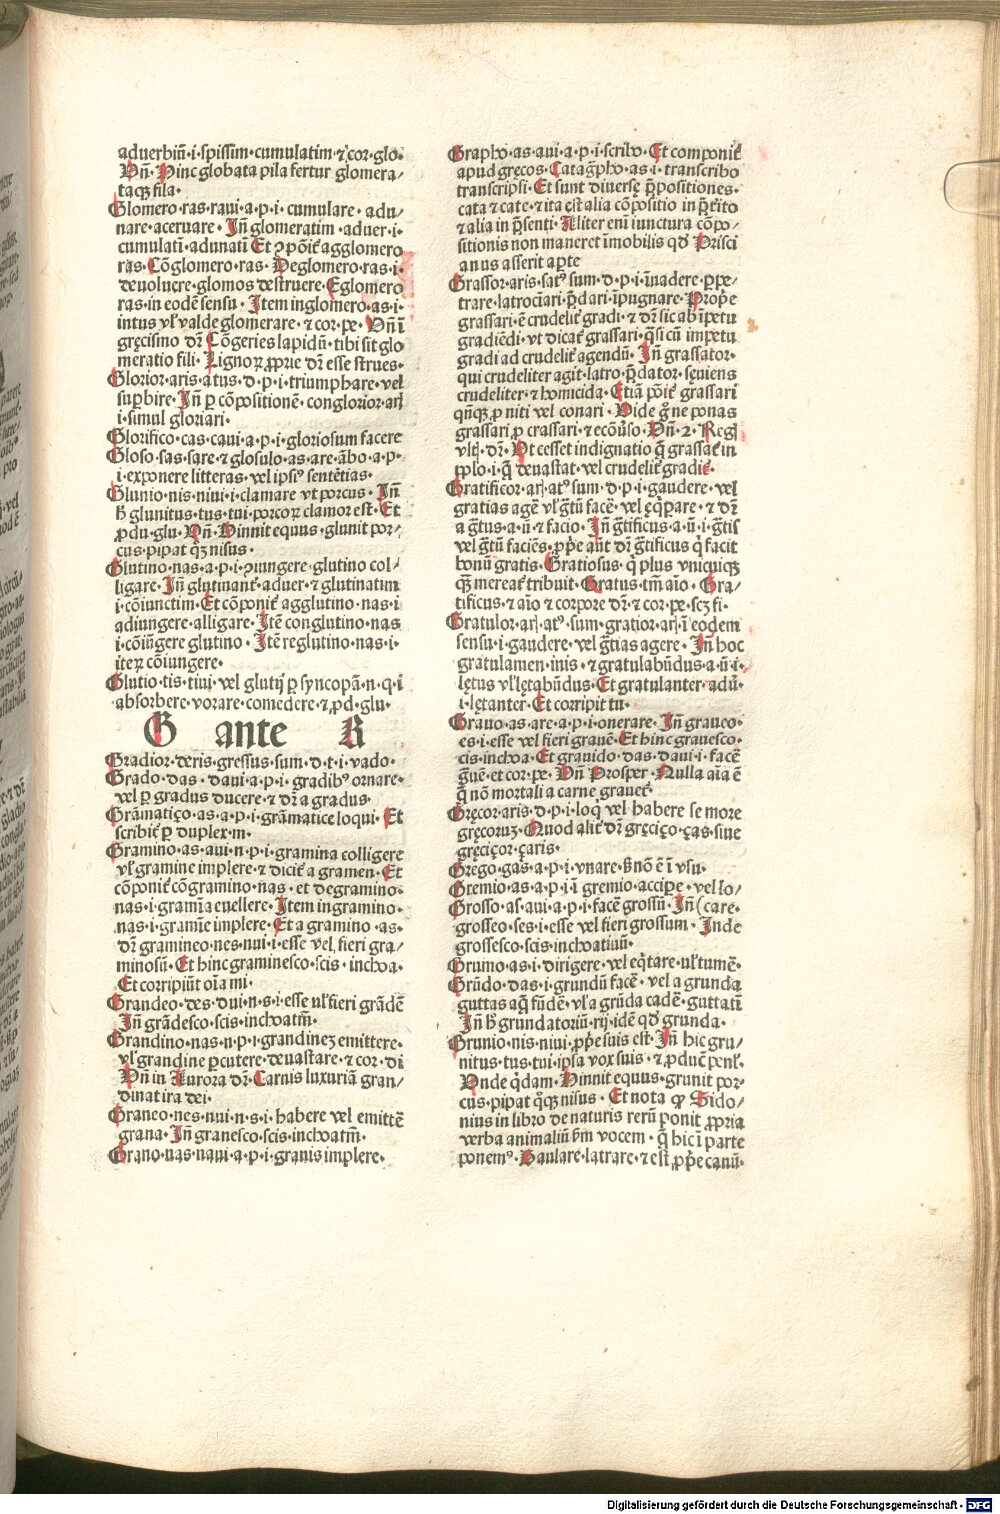 aduerbiū·i·spissim·cumulatim·⁊ cor·glo·
Vn̄· Hinc globata pila fertur glomera/
taqꝫ fila·
Glomero·ras·raui·a·p·i·cumulare·adu/
nare·aceruare· Jn̄ glomeratim·aduer·i·
cumulatī·adunatī Et ↄpōit̄ agglomero
ras·Cōglomero·ras· Deglomero·ras·i·
deuoluere·glomos destruere·Eglomero
ras·in eodē sensu· Jtem inglomero·as·i·
intus vl̓ valde glomerare·⁊ cor·pe· Vn̄ ī
gręcismo dr̄ Cōgeries lapidū·tibi sit glo
meratio fili· Lignoꝝ ꝓprie dr̄ esse strues·
Glorior·aris·atus·d·p·i·triumphare·vel
suꝑbire·Jn̄ ꝑ cōpositionē·conglorior·arꝭ
i·simul gloriari·
Glorifico·cas·caui·a·p·i·gloriosum facere
Gloso·sas·sare·⁊ glosulo·as·are·ābo·a·p·
i·exponere litteras·vel ipsiꝰ sentētias·
Glunio·nis·niui·i·clamare vt porcus· Jn̄
h̄ glunitus·tus·tui·porcoꝝ clamor est· Et
ꝓdu·glu· Vn̄· Hinnit equus·glunit por/
cus·pipat qꝫ nisus·
Glutino·nas·a·p·i·ↄiungere·glutino col/
ligare· Jn̄ glutinant̄·aduer·⁊ glutinatim
i·cōiunctim·Et cōponit̄ agglutino·nas·i
adiungere·alligare· Jtē conglutino·nas
i·cōiūgere glutino· Jtē reglutino·nas·i·
iteꝝ cōiungere·
Glutio·tis·tiui·vel glutij ꝑ syncopā·n·q·i
absorbere·vorare·comedere·⁊ ꝓd·glu·
G ante R
Gradior·deris·gressus·sum·d·t·i·vado·
Grado·das·daui·a·p·i·gradibꝰ ornare·
vel ꝑ gradus ducere·⁊ dr̄ a gradus·
Grāmatiço·as·a·p·i·grāmatice loqui· Et
scribit̄ ꝑ duplex·m·
Gramino·as·aui·n·p·i·gramina colligere
vl̓ gramine implere·⁊ dicit̄ a gramen· Et
cōponit̄ cōgramino·nas·et degramino·
nas·i·gramīa euellere· Jtem ingramino·
nas·i·gramīe implere· Et a gramino·as·
dr̄ gramineo·nes·nui·i·esse vel fieri gra/
minosū· Et hinc graminesco·scis·inchoa·
Et corripiūt oīa mi·
Grandeo·des·dui·n·s·i·esse vl̓ fieri grādē
Jn̄ grādesco·scis·inchoatm̄·
Grandino·nas·n·p·i·grandineꝫ emittere·
vl̓ grandine ꝑcutere·deuastare·⁊ cor·di
Vn̄ in Aurora dr̄· Carnis luxuriā gran/
dinat ira dei·
Graneo·nes·nui·n·s·i·habere vel emittē
grana· Jn̄ granesco·scis·inchoatm̄·
Grano·nas·naui·a·p·i·granis implere·
Grapho·as·aui·a·p·i·scribo· Et componit̄
apud gręcos· Catagͣpho·as·i·transcribo
transcripsi· Et sunt diuersę p̄positiones·
cata ⁊ cate·⁊ ita est alia cōpositio in p̄t̄ito
⁊ alia in p̄senti· Aliter enī iunctura cōpo/
sitionis non maneret īmobilis qd̓ Prisci
anus asserit aꝑte
Grassor·aris·satꝰ sum·d·p·i·īuadere·ꝑpe/
trare·latrocīari·p̄dari·īpugnare· Propͥe
grassari·ē crudelit̄ gradi·⁊ dr̄ sic ab īpetu
gradiēdi·vt dicat̄ grassari·qͣsi cū impetu
gradi ad crudelit̄ agendū· Jn̄ grassator·
qui crudeliter agit·latro·p̄dator·sęuiens
crudeliter·⁊ homicida· Etiā pōit̄ grassari
qn̄qꝫ ꝓ niti vel conari· Vide gͦ ne ponas
grassari ꝓ crassari·⁊ ecōuͥso· Vn̄·2·Regꝭ
vltꝭ·dr̄· Vt cesset indignatio q̄ grassat̄ in
pplo·i·q̄ deuastat·vel crudelit̄ gradit̄·
Gratificor·arꝭ·atꝰ sum·d·p·i·gaudere·vel
gratias agē vl̓ gͣtū facē·vel ęqͥpare·⁊ dr̄
a gͣtus·a·ū·⁊ facio· Jn̄ gͣtificus·a·ū·i·gͣtis
vel gͣtū faciēs·ꝓpͥe aūt dr̄ gͣtificus qͥ facit
bonū gratis· Gratiosus·qͥ plus vnicuiqꝫ
qͣꝫ mereat̄ tribuit· Gratus·tm̄ aīo· Gra/
tificus·⁊ aīo ⁊ corpore dr̄·⁊ cor·pe·scꝫ fi·
Gratulor·arꝭ·atꝰ·sum·gratior·arꝭ·ī eodem
sensu·i·gaudere·vel gͣtias agere· Jn̄ hoc
gratulamen·inis·⁊ gratulabūdus·a·ū·i·
lętus vl̓ lętabūdus· Et gratulanter·adū·
i·lętanter· Et corripit tu·
Grauo·as·are·a·p·i·onerare· Jn̄ graueo·
es·i·esse vel fieri grauē· Et hinc grauesco·
cis·inchoa· Et grauido·das·daui·i·facē
gͣuē·et cor·pe· Vn̄ Prosper· Nulla aīa ē
q̄ nō mortali a carne grauet̄·
Gręcor·aris·d·p·i·loqͥ vel habere se more
gręcoruꝫ· Quod alit̄ dr̄ gręciço·ças·siue
gręciçor·çaris·
Grego·gas·a·p·i·vnare·s̄ nō ē ī vsu·
Gremio·as·a·p·i·ī gremio·acciꝑe·vel lo/
Grosso·as·aui·a·p·i·facē grossū· Jn̄ (care·
grosseo·ses·i·esse vel fieri grossum· Jnde
grossesco·scis·inchoatiuū·
Grumo·as·i·dirigere·vel eqͥtare·vl̓ tumē·
Grūdo·das·i·grundū facē· vel a grunda
guttas aqͣ fūdē·vl̓ a grūda cadē·guttatī
Jn̄ h̄ grundatoriū·rij·idē qd̓ grunda·
Grunio·nis·niui·ꝓpͥe suis est· Jn̄ hic gru/
nitus·tus·tui·ipsa vox suis·⁊ ꝓducͥ penl̓·
Vnde qͥdam· Hinnit equus·grunit por/
cus·pipat qͦqꝫ nisus· Et nota ꝙ Sido/
nius in libro de naturis rerū ponit ꝓpria
verba animaliū ẜm vocem·q̄ hic ī parte
ponemꝰ· Baulare·latrare·⁊ est ꝓpͥe canū·
Digitalisierung gefördert durch die Deutsche Forschungsgemeinschaft - DFG